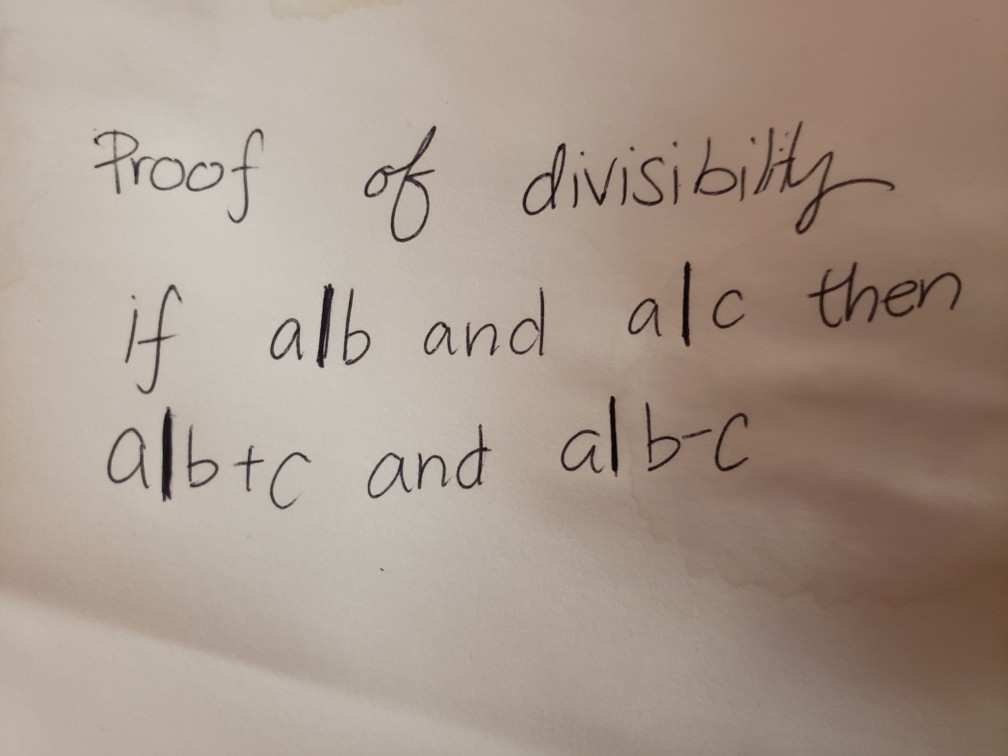 Proof of divisibility
if a|b and a|c then
a|b+c and a|b-c